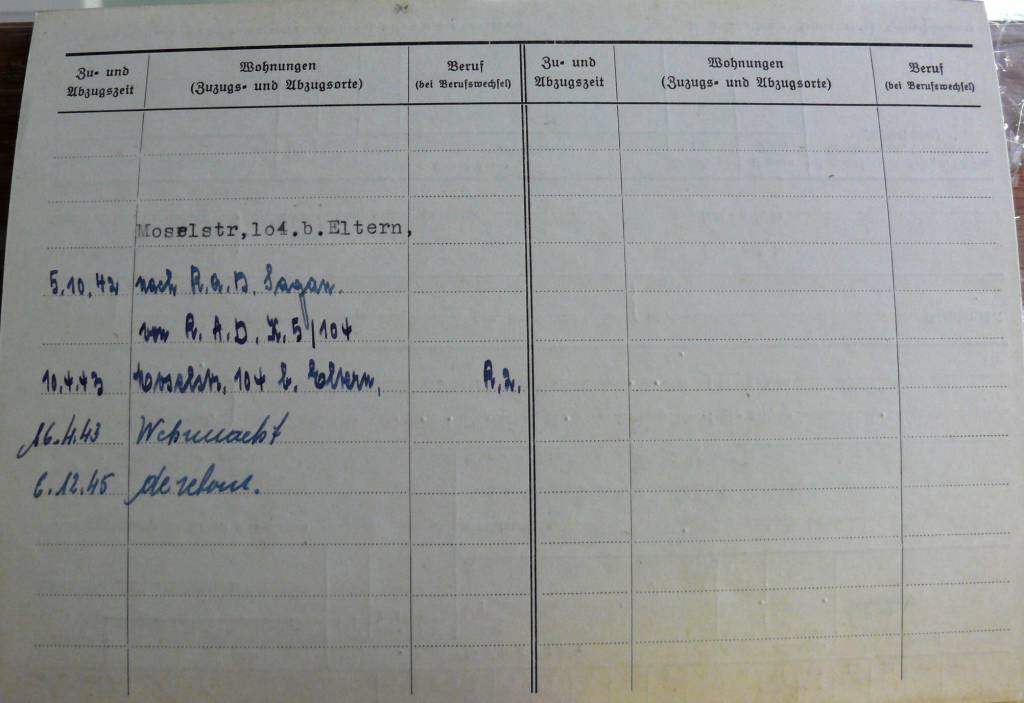 Zu- und Abzugszeit Wohnungen (Zuzugs- und Abzugsorte) Beruf (bei Berufswechsel) Zu- und Abzugszeit Wohnungen (Zuzugs- und Abzugsorte) Beruf (bei Berufswechsel)
Moselstr,1o4.b.Eltern,
5.10.42 nach R.A.D. Sagan.
von R.A.D. K.5/104
10.4.43 Moselstr. 104 b. Eltern,
16.4.43 Wehrmacht
6.12.45 de retour.